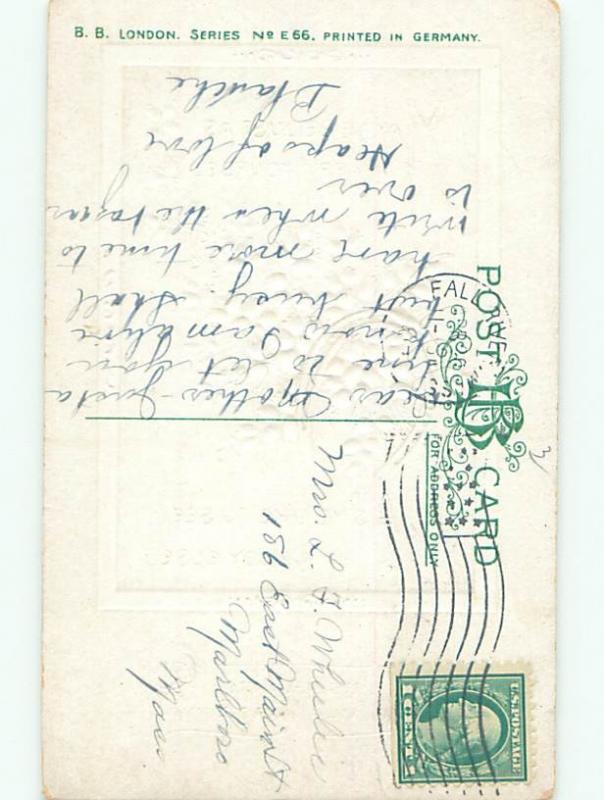 B. B. LONDON. SERIES Nº E 66. PRINTED IN GERMANY.
POST CARD
BB
FOR ADDRESS ONLY
FALL RIVER
U.S. POSTAGE
1 CENT 1
Dear Mother - Just a
line to let you
know I am alive
but busy. Shall
have more time to
write when the
is over
Heaps of love
Blanche
Mrs. L. F. Wheeler
186 East Main St
Marlboro
Mass
3